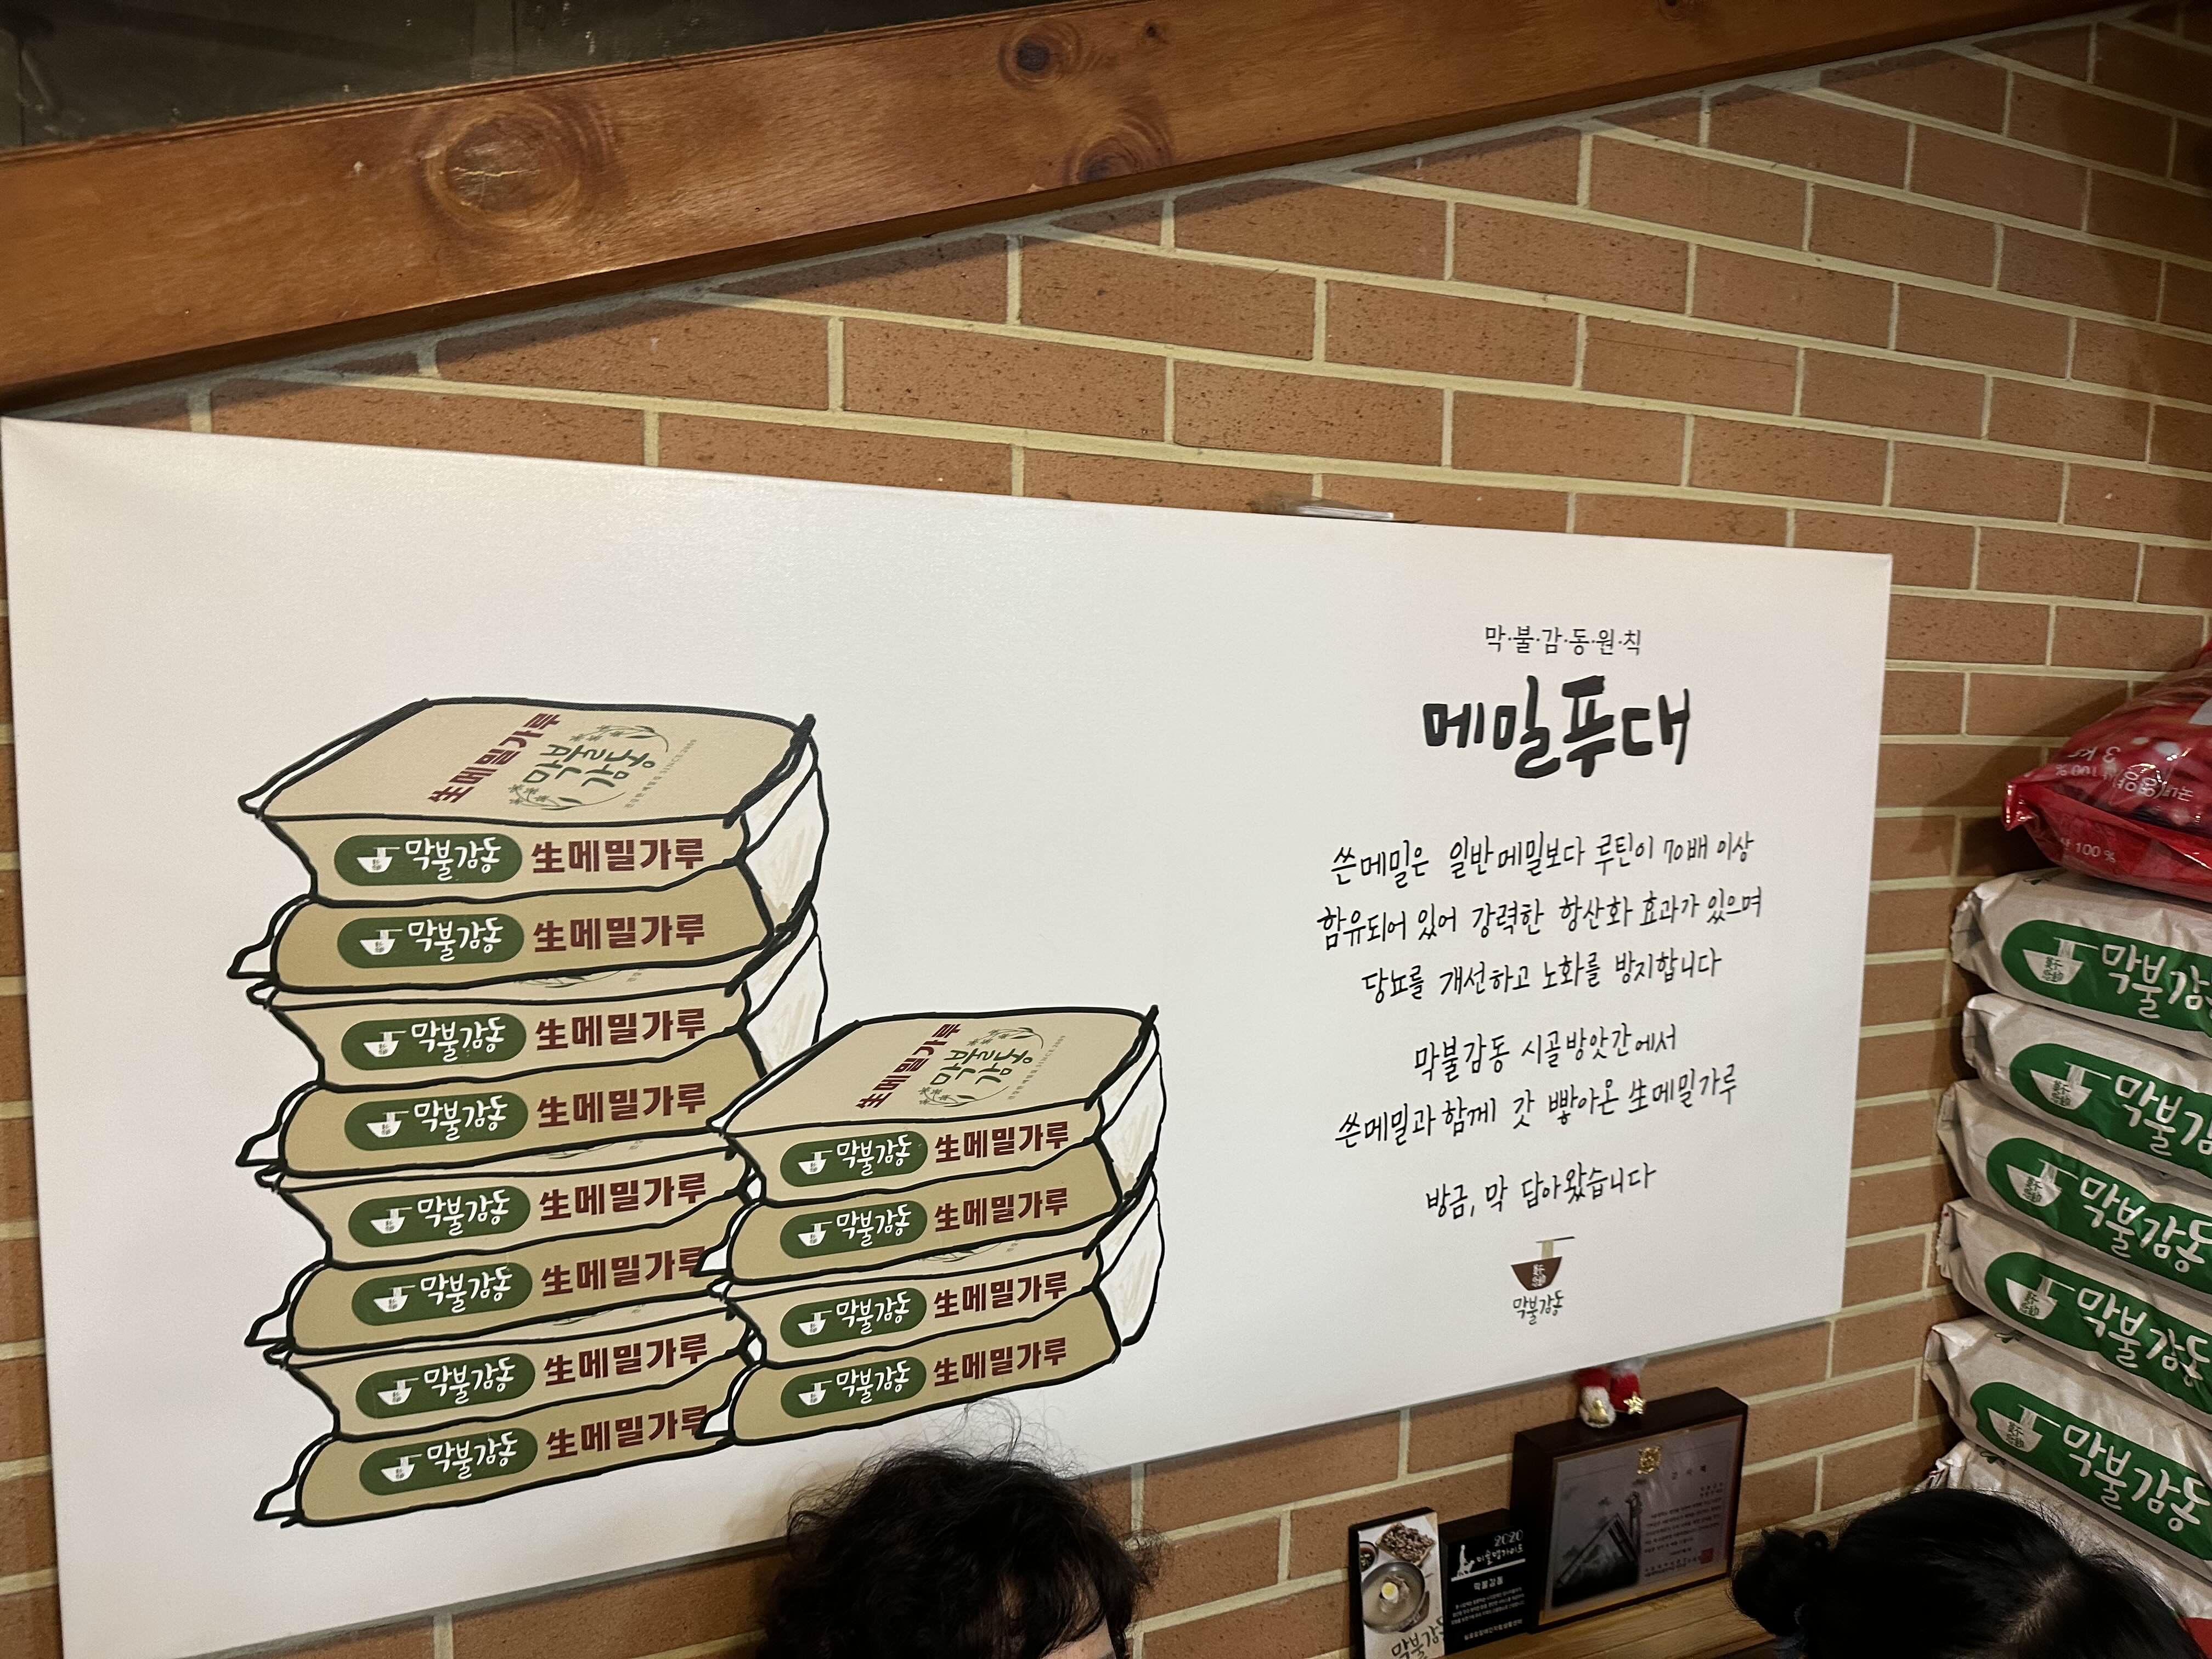 막·불·감·동·원·칙
메밀푸대
쓴메밀은 일반메밀보다 루틴이 70배 이상
함유되어 있어 강력한 항산화 효과가 있으며
당뇨를 개선하고 노화를 방지합니다
막불감동 시골방앗간에서
쓴메밀과 함께 갓 빻아온 生메밀가루
방금, 막 담아왔습니다
막불감동
生메밀가루
막불감동
SINCE
막불감동 生메밀가루
막불감동 生메밀가루
막불감동 生메밀가루
막불감동 生메밀가루
막불감동 生메밀가루
막불감동 生메밀가루
막불감동 生메밀가루
막불감동 生메밀가루
生메밀가루
막불감동
SINCE
막불감동 生메밀가루
막불감동 生메밀가루
막불감동 生메밀가루
막불감동 生메밀가루
3
100%
100%
막불감
막불감
막불감동
막불감동
막불감동
감사패
2020
막불감동
막불감